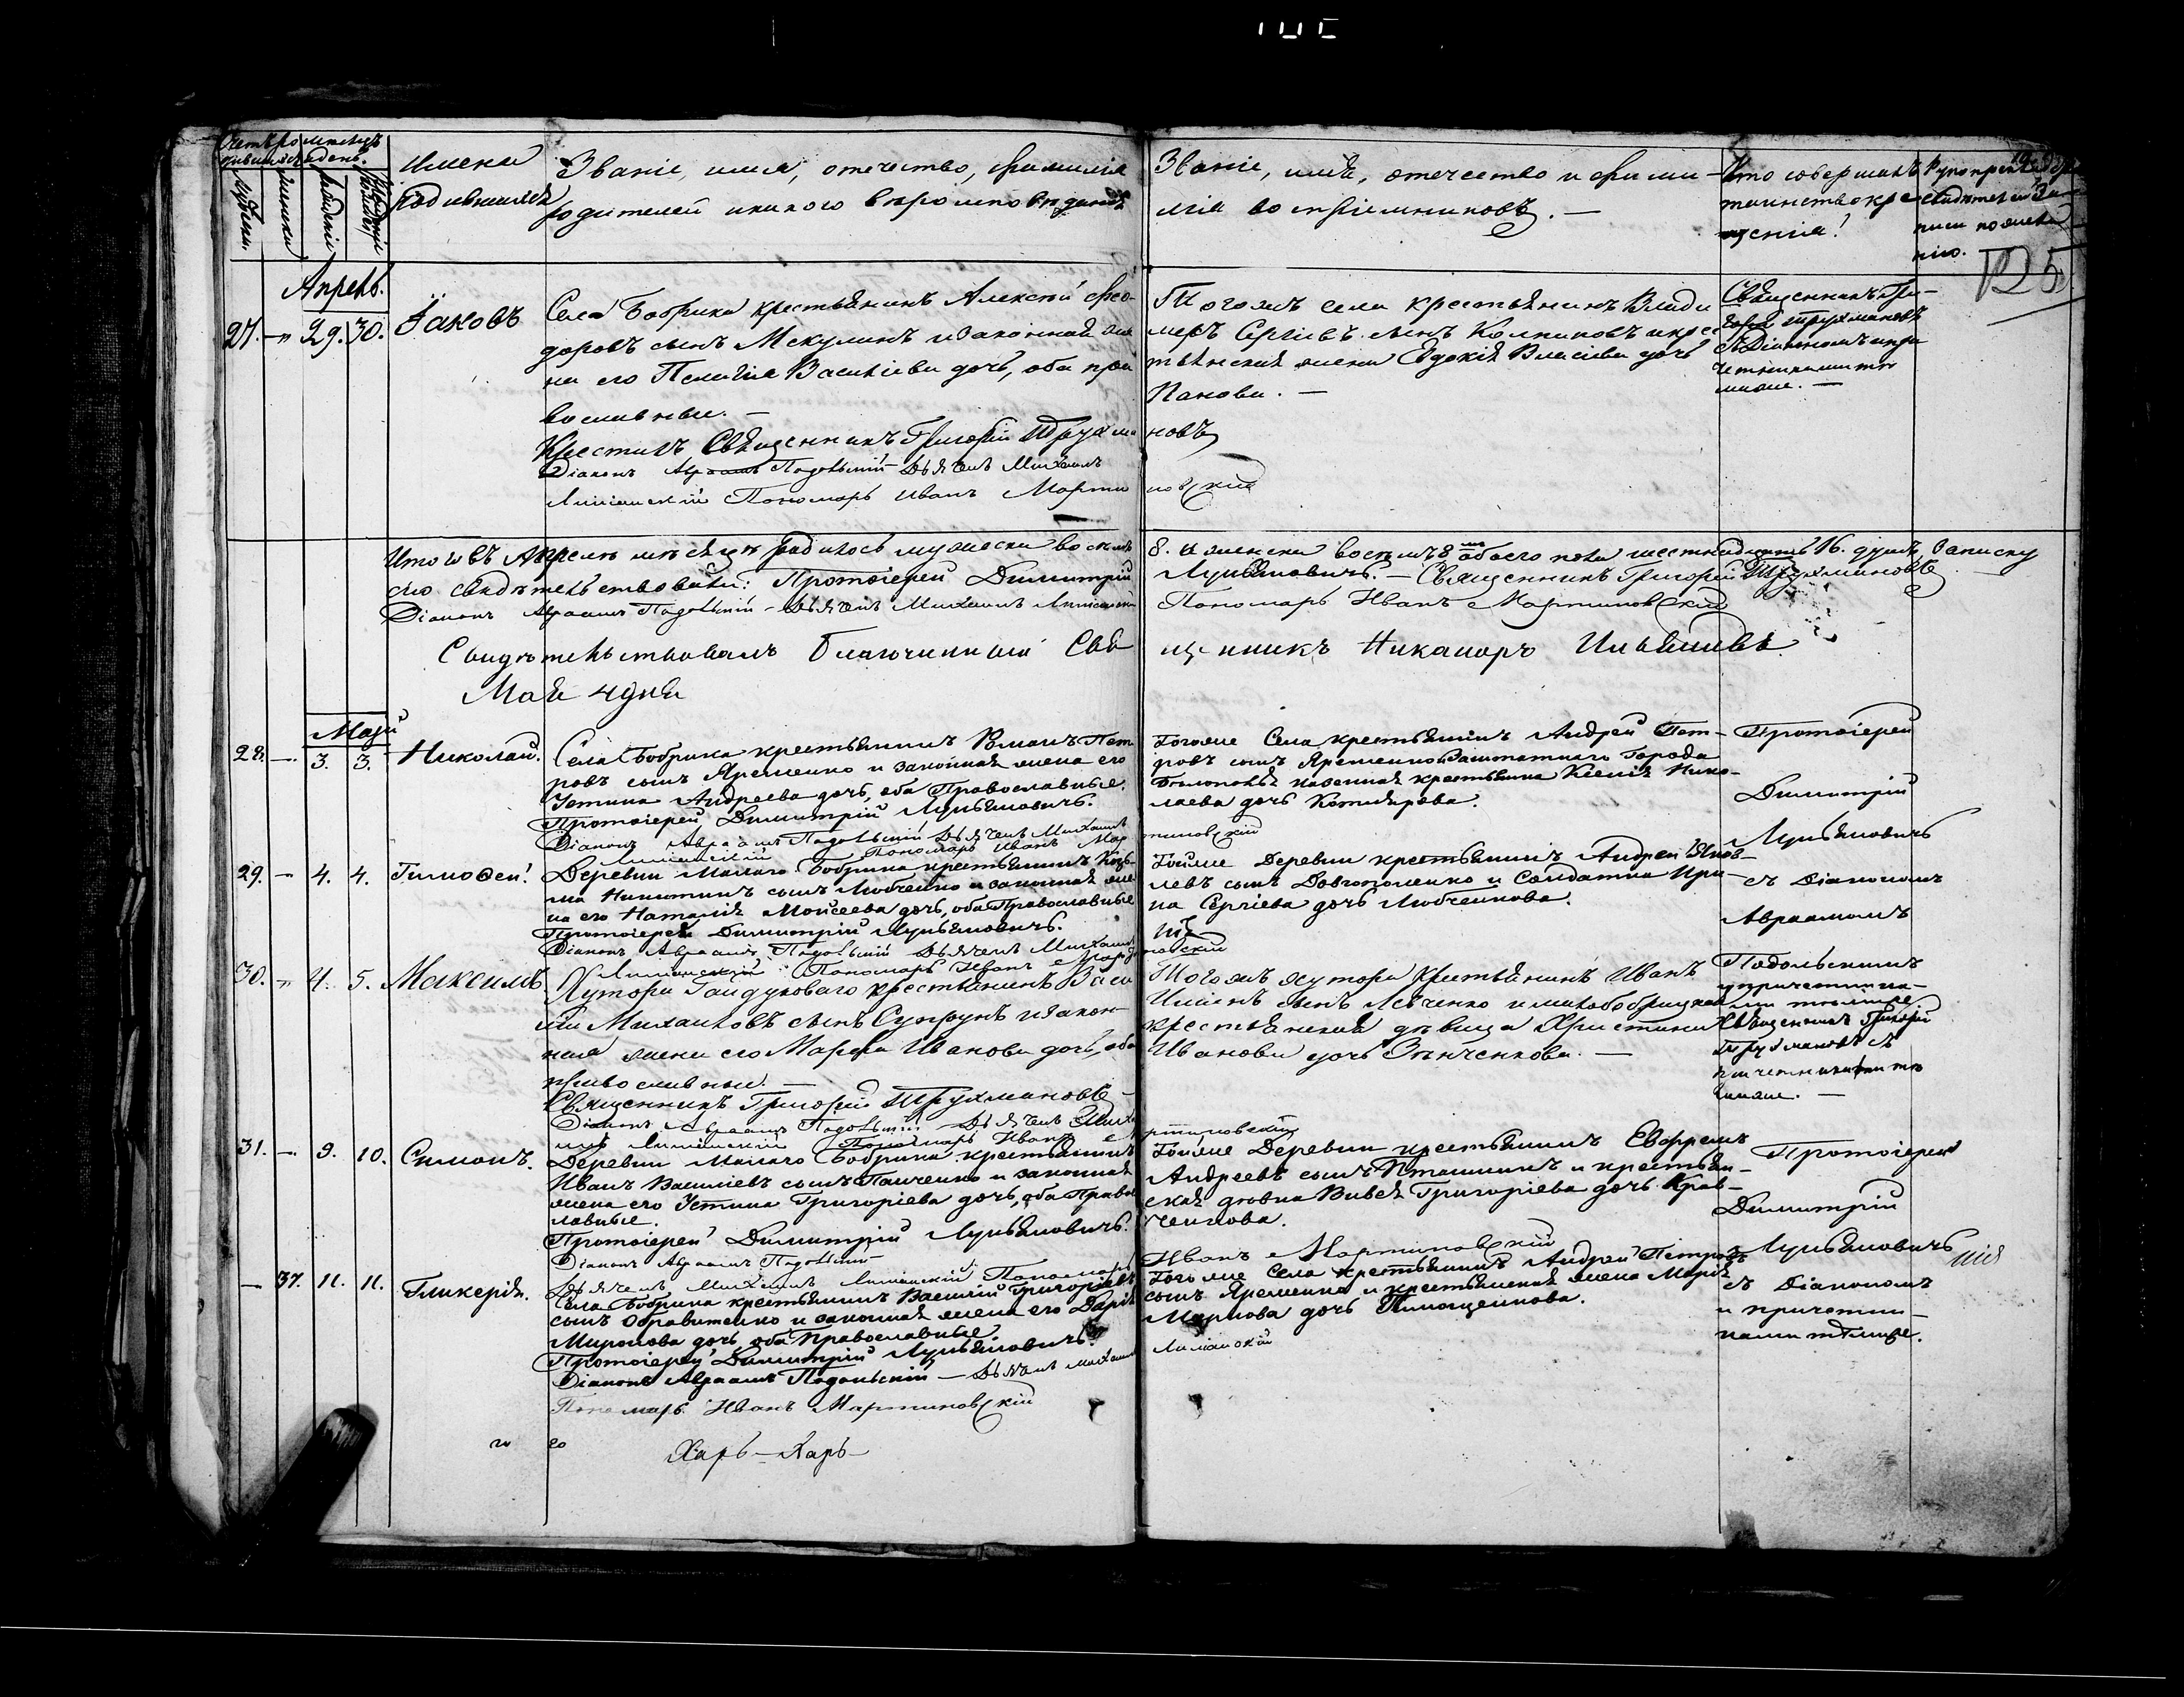 Счетъ ро мѣсяцъ
дившихся день.
Мужеска.
женска
рожденія
крещенія
Имена
родившихся
Званіе, имя, отечество, фамилія
родителей и какого вѣроисповѣданія
Званіе, имя, отечество и фами-
лія воспріемниковъ. —
Кто совершалъ
таинство кре-
щенія?
Рукоприкладство
свидѣтелей за-
писи по жела-
нію.
125
Апрель.
27. —„ 29. 30. Іаковъ
Села Бобрика крестьянинъ Алексѣй Фео-
доровъ сынъ и законная же
на его Пелагія Василіева дочь, оба пра
вославные. —
Крестилъ Священникъ Григорій Трухма
Діаконъ Авраамъ Подольскій Дьячекъ Михаилъ
Пономарь Иванъ Марти
Тогожъ села крестьянинъ Влади
меръ Сергіевъ сынъ и крес
тьянская жена Евдокія Власіева дочь
Панова. —
новъ
новскій
Священникъ Гри-
горій Трухмановъ
съ Діакономъ и при
четниками то
мже. —
Итого въ Апрелѣ мѣсяцѣ родилось мужеска восемь
8. и женска восемь 8 обоего пола шестнадцать 16. душъ, записку
сію свидѣтельствовали: Протоіерей Димитрій
Лукьяновичъ. — Священникъ Григорій Трухмановъ
Діаконъ Авраамъ Подольскій — Дьячекъ Михаилъ
Пономарь Иванъ Мартиновскій
Свидѣтельствовалъ Благочинный Свя
щенникъ Никаноръ
Мая 4 дня
Маій
28. —. 3. 3. Николай.
Села Бобрика крестьянинъ Романъ Пет
ровъ сынъ Яременко и законная жена его
Устина Андреева дочь, оба Православные.
Протоіерей Димитрій Лукьяновичъ.
Діаконъ Авраамъ Подольскій Дьячекъ Михаилъ
Пономарь Иванъ Мар
Тогоже Села крестьянинъ Андрей Пет-
ровъ сынъ Яременко Заштатнаго Города
Бѣлополья казенная крестьянка Ксенія Нико-
лаева дочь Котлярова.
тиновскій
Протоіерей
Димитрій
Лукьяновичъ
съ Діакономъ
Авраамомъ
Подольскимъ
и причетни-
ками тѣмже.
29. — 4. 4. Тимоѳей.
Деревни Малаго Бобрика крестьянинъ Козь-
ма Никитинъ сынъ Любченко и законная же
на его Наталія Моисеева дочь, оба Православные
Протоіерей Димитрій Лукьяновичъ.
Діаконъ Авраамъ Подольскій Дьячекъ Михаилъ
Пономарь Иванъ Марти
Тойже Деревни крестьянинъ Андрей Яков-
левъ сынъ Довгополенко и Солдатка Ири-
на Сергіева дочь Любченкова.
новскій
30. —„ 4. 5. Максимъ.
Хутора Гайдуковаго крестьянинъ Васи
лій Михайловъ сынъ Супрунъ и закон-
ная жена его Марѳа Иванова дочь, оба
православные. —
Священникъ Григорій Трухмановъ
Діаконъ Авраамъ Подольскій Дьячекъ Миха
илъ Пономарь Иванъ
Тогожъ хутора крестьянинъ Иванъ
сынъ Левченко и малобобрицкая
крестьянская дѣвица Христина
Иванова дочь Зѣнченкова. —
ртиновскій
Священникъ Григорій
Трухмановъ съ
причетниками
31. —. 9. 10. Симонъ.
Деревни Малаго Бобрика крестьянинъ
Иванъ Василіевъ сынъ Панченко и законная
жена его Устина Григоріева дочь, оба Правос
лавные.
Протоіерей Димитрій Лукьяновичъ.
Діаконъ Авраамъ Подольскій
Дьячекъ Михаилъ Пономарь
Тойже Деревни крестьянинъ Евфремъ
Андреевъ сынъ Пташнинъ и крестьян-
ская дѣвка Вивея Григоріева дочь Крав-
ченкова.
Иванъ Мартиновскій
Протоіерей
Димитрій
Лукьяновичъ
съ Діакономъ
и причетни-
ками тѣмже.
— 37. 11. 11. Гликерія.
Села Бобрика крестьянинъ Василій Григоріевъ
сынъ и законная жена его Дарія
Миронова дочь, оба Православные.
Протоіерей Димитрій Лукьяновичъ.
Діаконъ Авраамъ Подольскій — Дьячекъ Михаилъ
Пономарь Иванъ Мартиновскій
Тогоже Села крестьянинъ Андрей Петровъ
сынъ Яременко и крестьянская жена Марія
Маркова дочь
Харь — Харь —